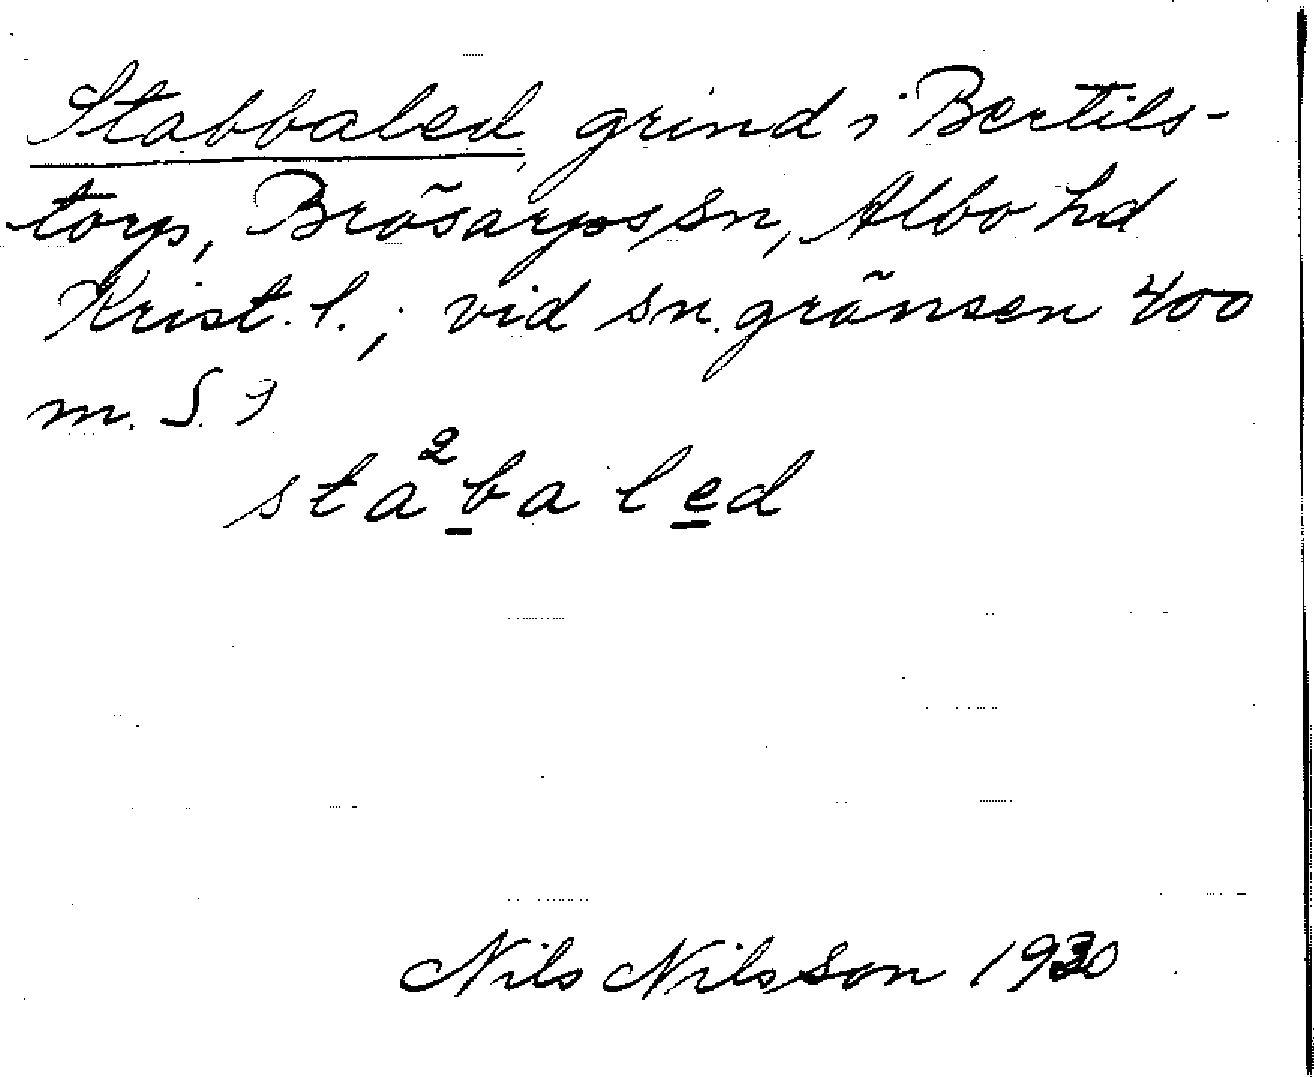 Stabbaled, grind i Bertils-
torp, Brösarps sn, Albo hd
Krist. l.; vid sn. gränsen 400
m. S. 9
sta²baled
Nils Nilsson 1930